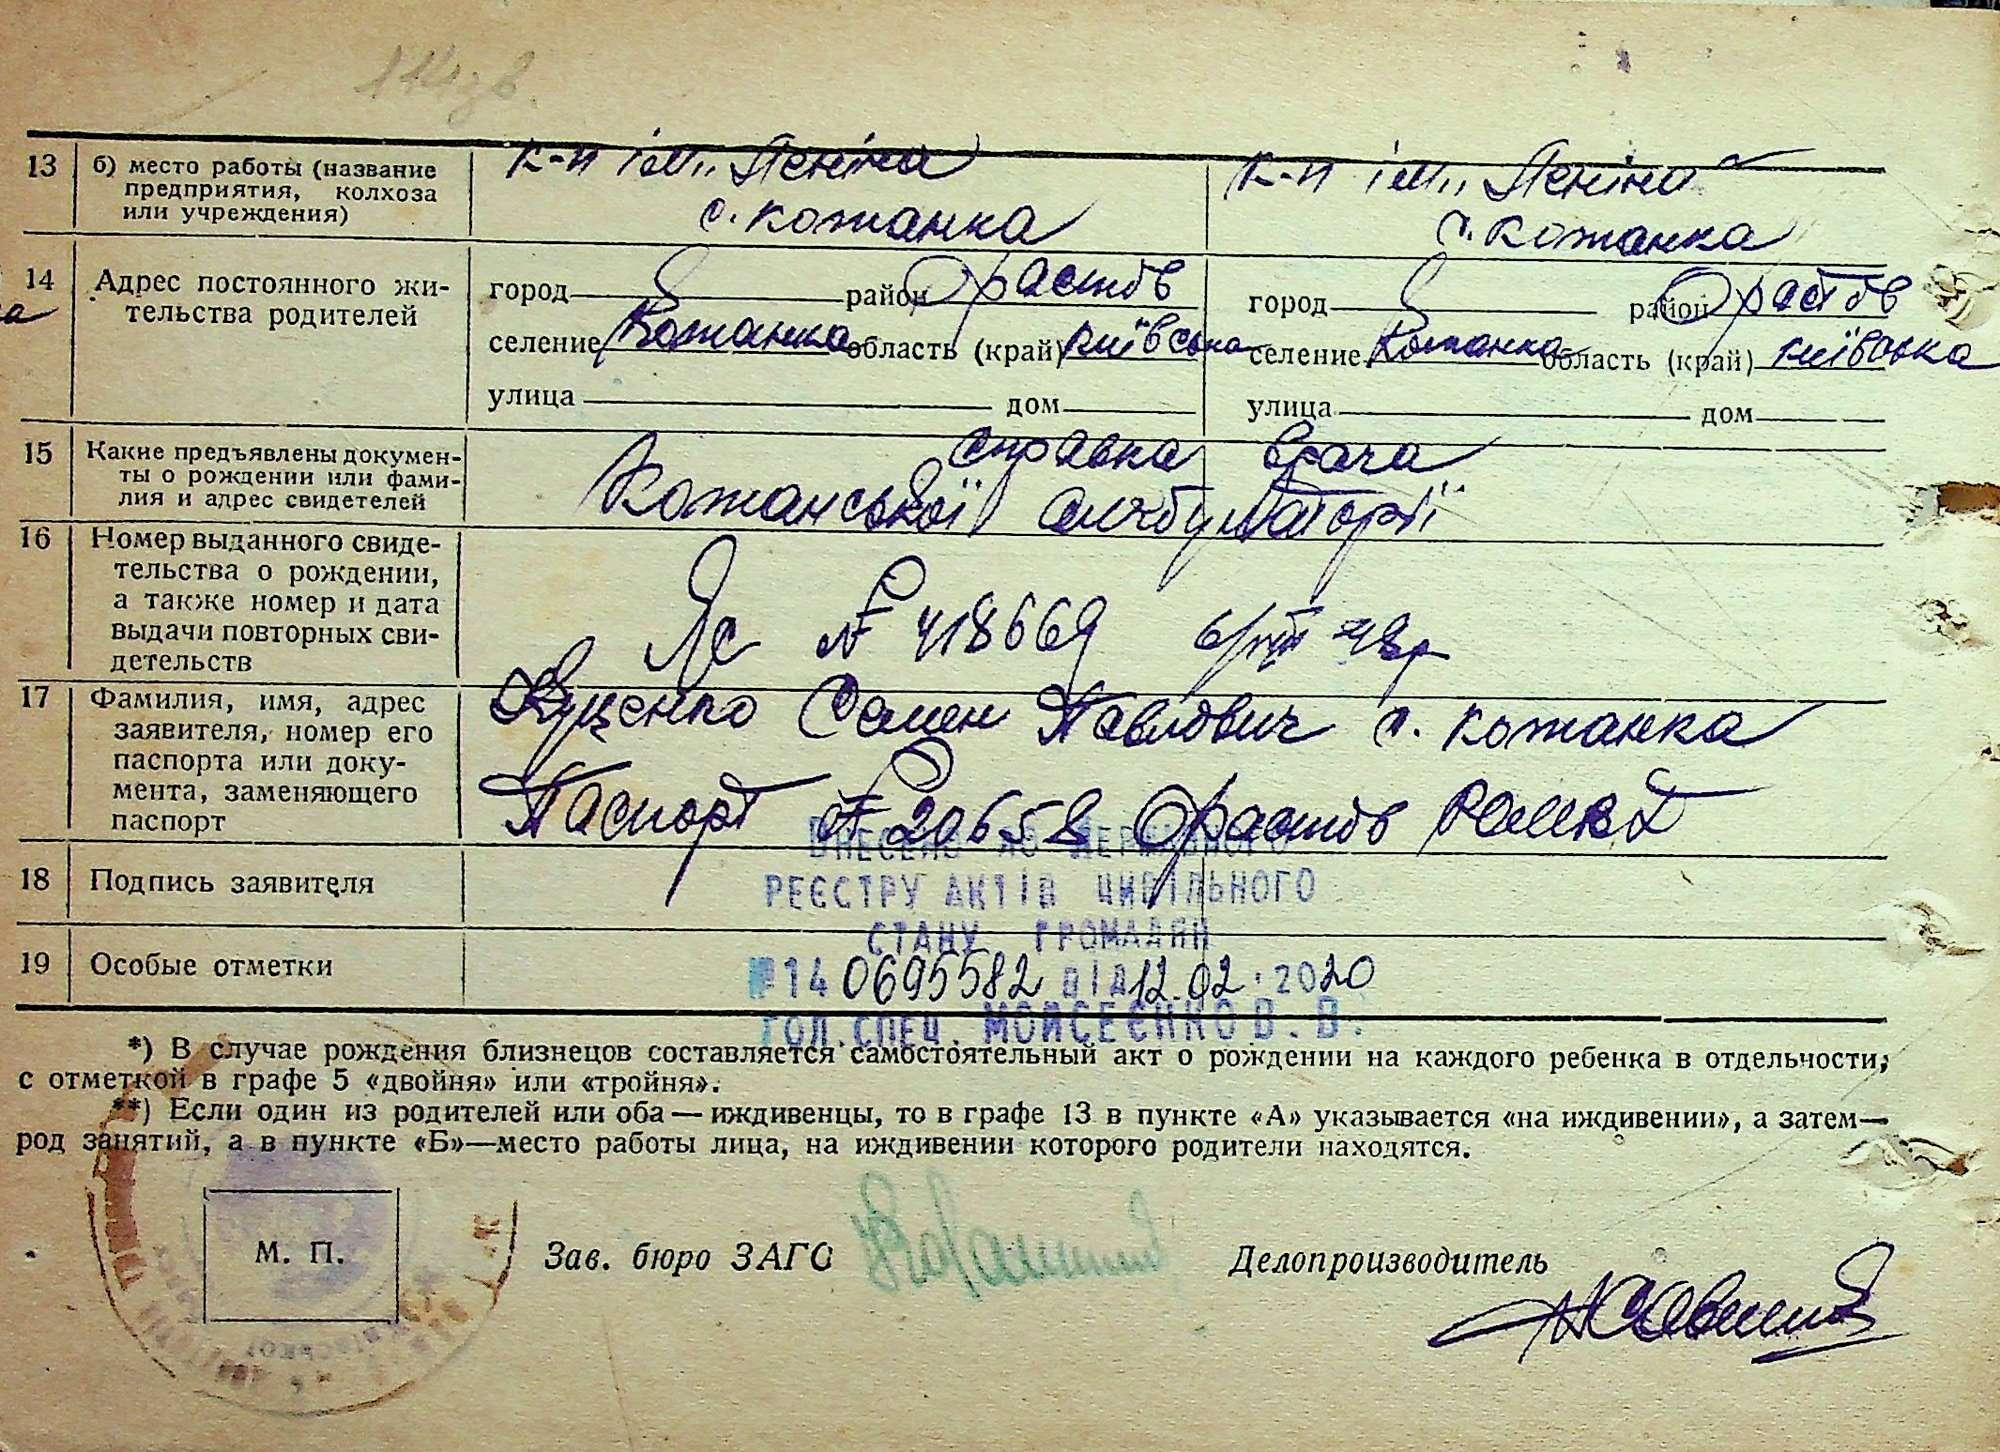 13 б) место работы (название предприятия, колхоза или учреждения)
к-п ім. Леніна
с. Кожанка
к-п ім. Леніна
с. Кожанка
14 Адрес постоянного жительства родителей
город район Фрастів
селение Кожанка область (край) Київська
улица дом
город район Фрастів
селение Кожанка область (край) Київська
улица дом
15 Какие предъявлены документы о рождении или фамилия и адрес свидетелей
справка врача
Кожанської амбулаторії
16 Номер выданного свидетельства о рождении, а также номер и дата выдачи повторных свидетельств
№ 418669
17 Фамилия, имя, адрес заявителя, номер его паспорта или документа, заменяющего паспорт
Куценко Семен Павлович с. Кожанка
Паспорт № 20658 Фрастів
18 Подпись заявителя
19 Особые отметки
Внесено до Державного
реєстру актів цивільного
стану громадян
№ 14 0695582 від 12.02.2020
Гол. спец. Мойсеєнко В. В.
*) В случае рождения близнецов составляется самостоятельный акт о рождении на каждого ребенка в отдельности,
с отметкой в графе 5 «двойня» или «тройня».
**) Если один из родителей или оба — иждивенцы, то в графе 13 в пункте «А» указывается «на иждивении», а затем—
род занятий, а в пункте «Б»—место работы лица, на иждивении которого родители находятся.
М. П.
Зав. бюро ЗАГС
Делопроизводитель